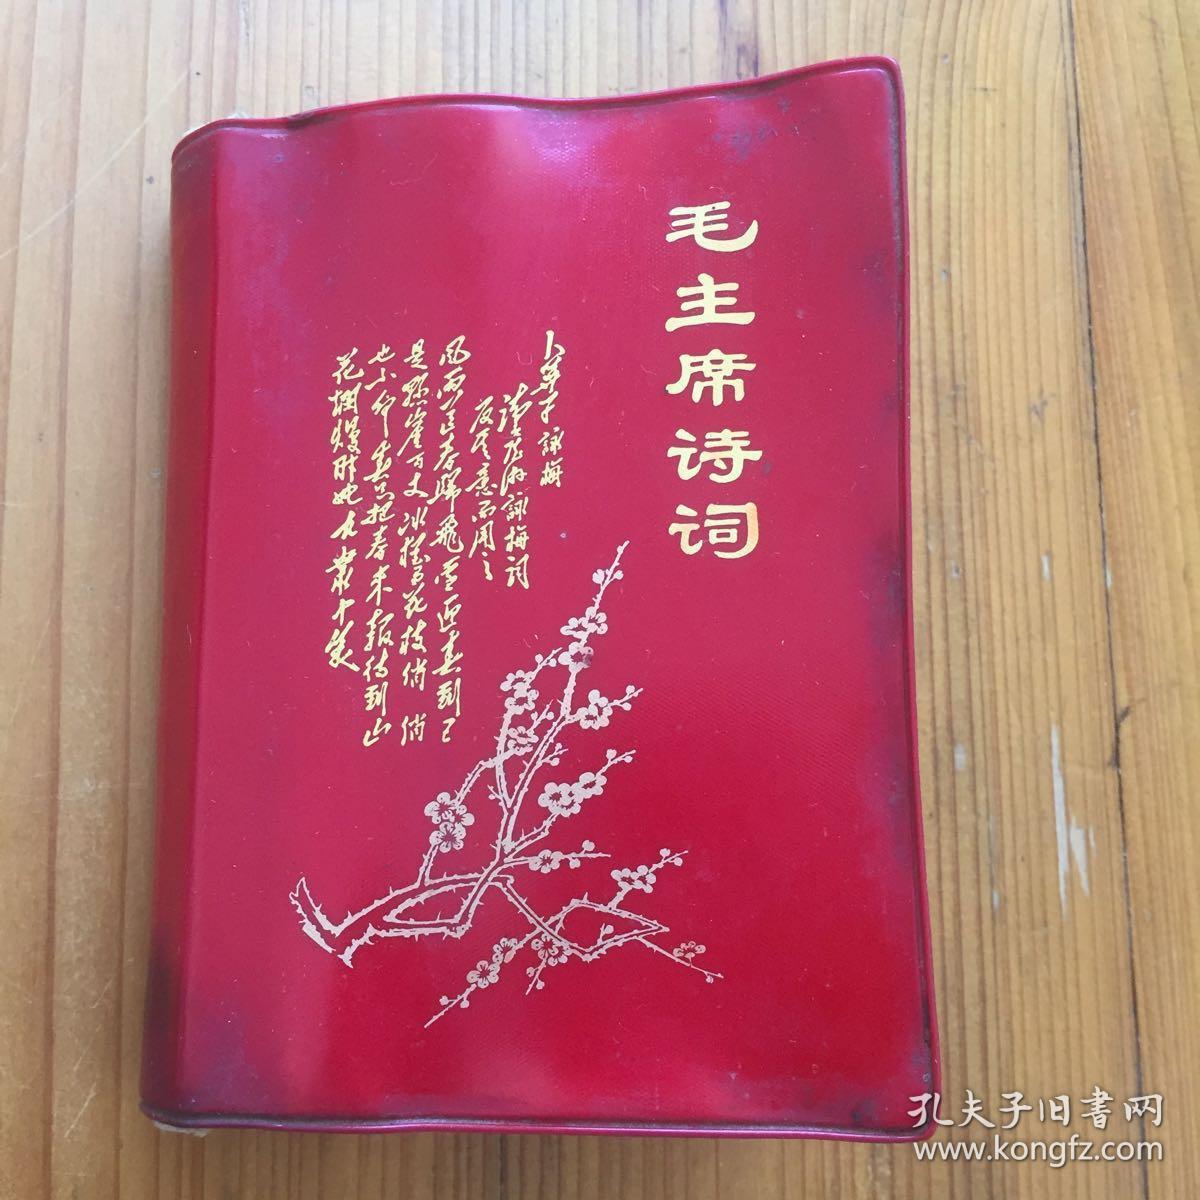 毛主席诗词
卜算子 詠梅
讀陸游詠梅詞
反其意而用之
风雨送春歸飛雪迎春到已
是懸崖百丈冰猶有花枝俏 俏
也不争春只把春来報待到山
花爛熳时她在叢中笑
孔夫子旧書网
www.kongfz.com